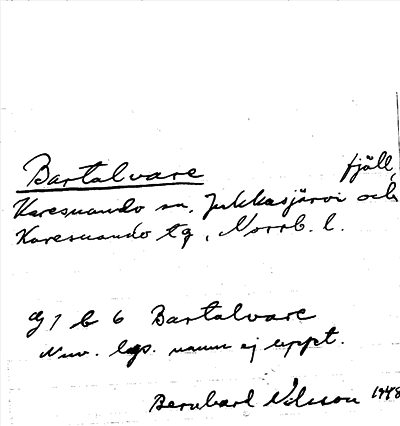 Bartalvare fjäll,
Karesuando sn, Jukkasjärvi och
Karesuando tg, Norrb. l.
dJ 1 b 6 Bartalvare
Nuv. lgs. namn ej uppt.
Bernhard Nilsson 1948